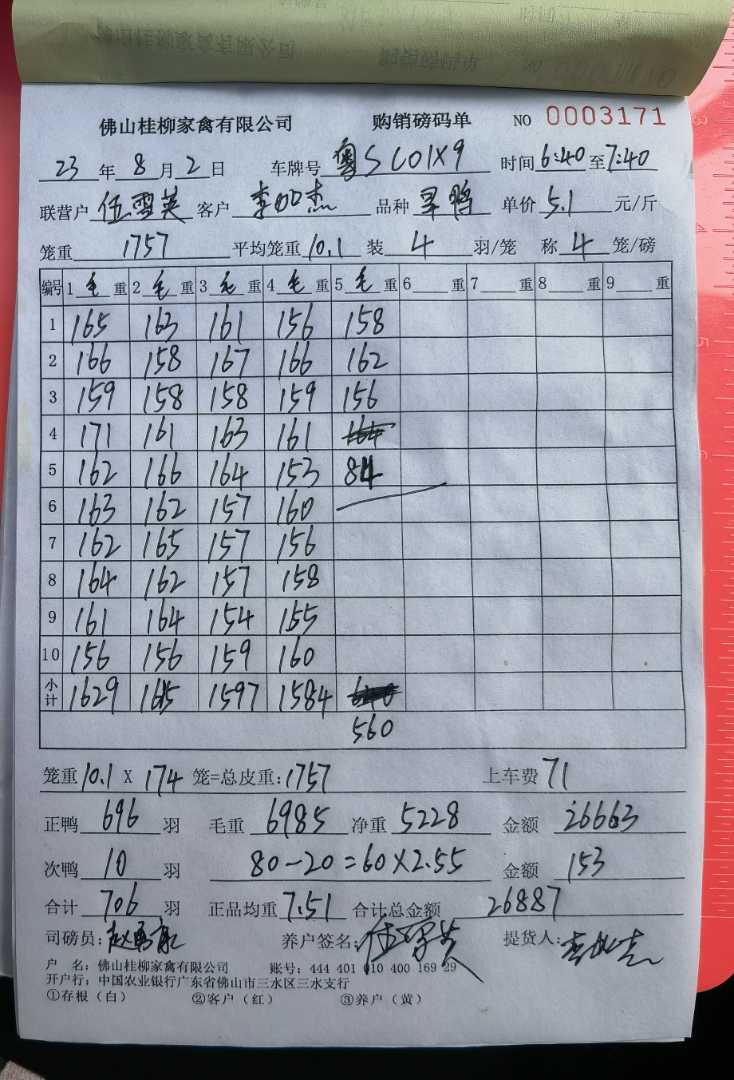 佛山桂柳家禽有限公司 购销磅码单 NO 0003171
23 年 8 月 2 日 车牌号 粤SC01X9 时间 6:40 至 7:40
联营户 伍雪英 客户 李如杰 品种 旱鸭 单价 5.1 元/斤
笼重 1757 平均笼重 10.1 装 4 羽/笼 称 4 笼/磅
编号 1 毛 重 2 毛 重 3 毛 重 4 毛 重 5 毛 重 6 重 7 重 8 重 9 重
1 165 163 161 156 158
2 166 158 167 166 162
3 159 158 158 159 156
4 171 161 163 161 164
5 162 166 164 153 84
6 163 162 157 160
7 162 165 157 156
8 164 162 157 158
9 161 164 154 155
10 156 156 159 160
小计 1629 1615 1597 1584
560
笼重 10.1 X 174 笼=总皮重: 1757 上车费 71
正鸭 696 羽 毛重 6985 净重 5228 金额 26663
次鸭 10 羽 80-20=60×2.55 金额 153
合计 706 羽 正品均重 7.51 合计总金额 26887
司磅员: 养户签名: 提货人:
户 名: 佛山桂柳家禽有限公司 账号: 444 401 010 400 169 29
开户行: 中国农业银行广东省佛山市三水区三水支行
①存根(白) ②客户(红) ③养户(黄)